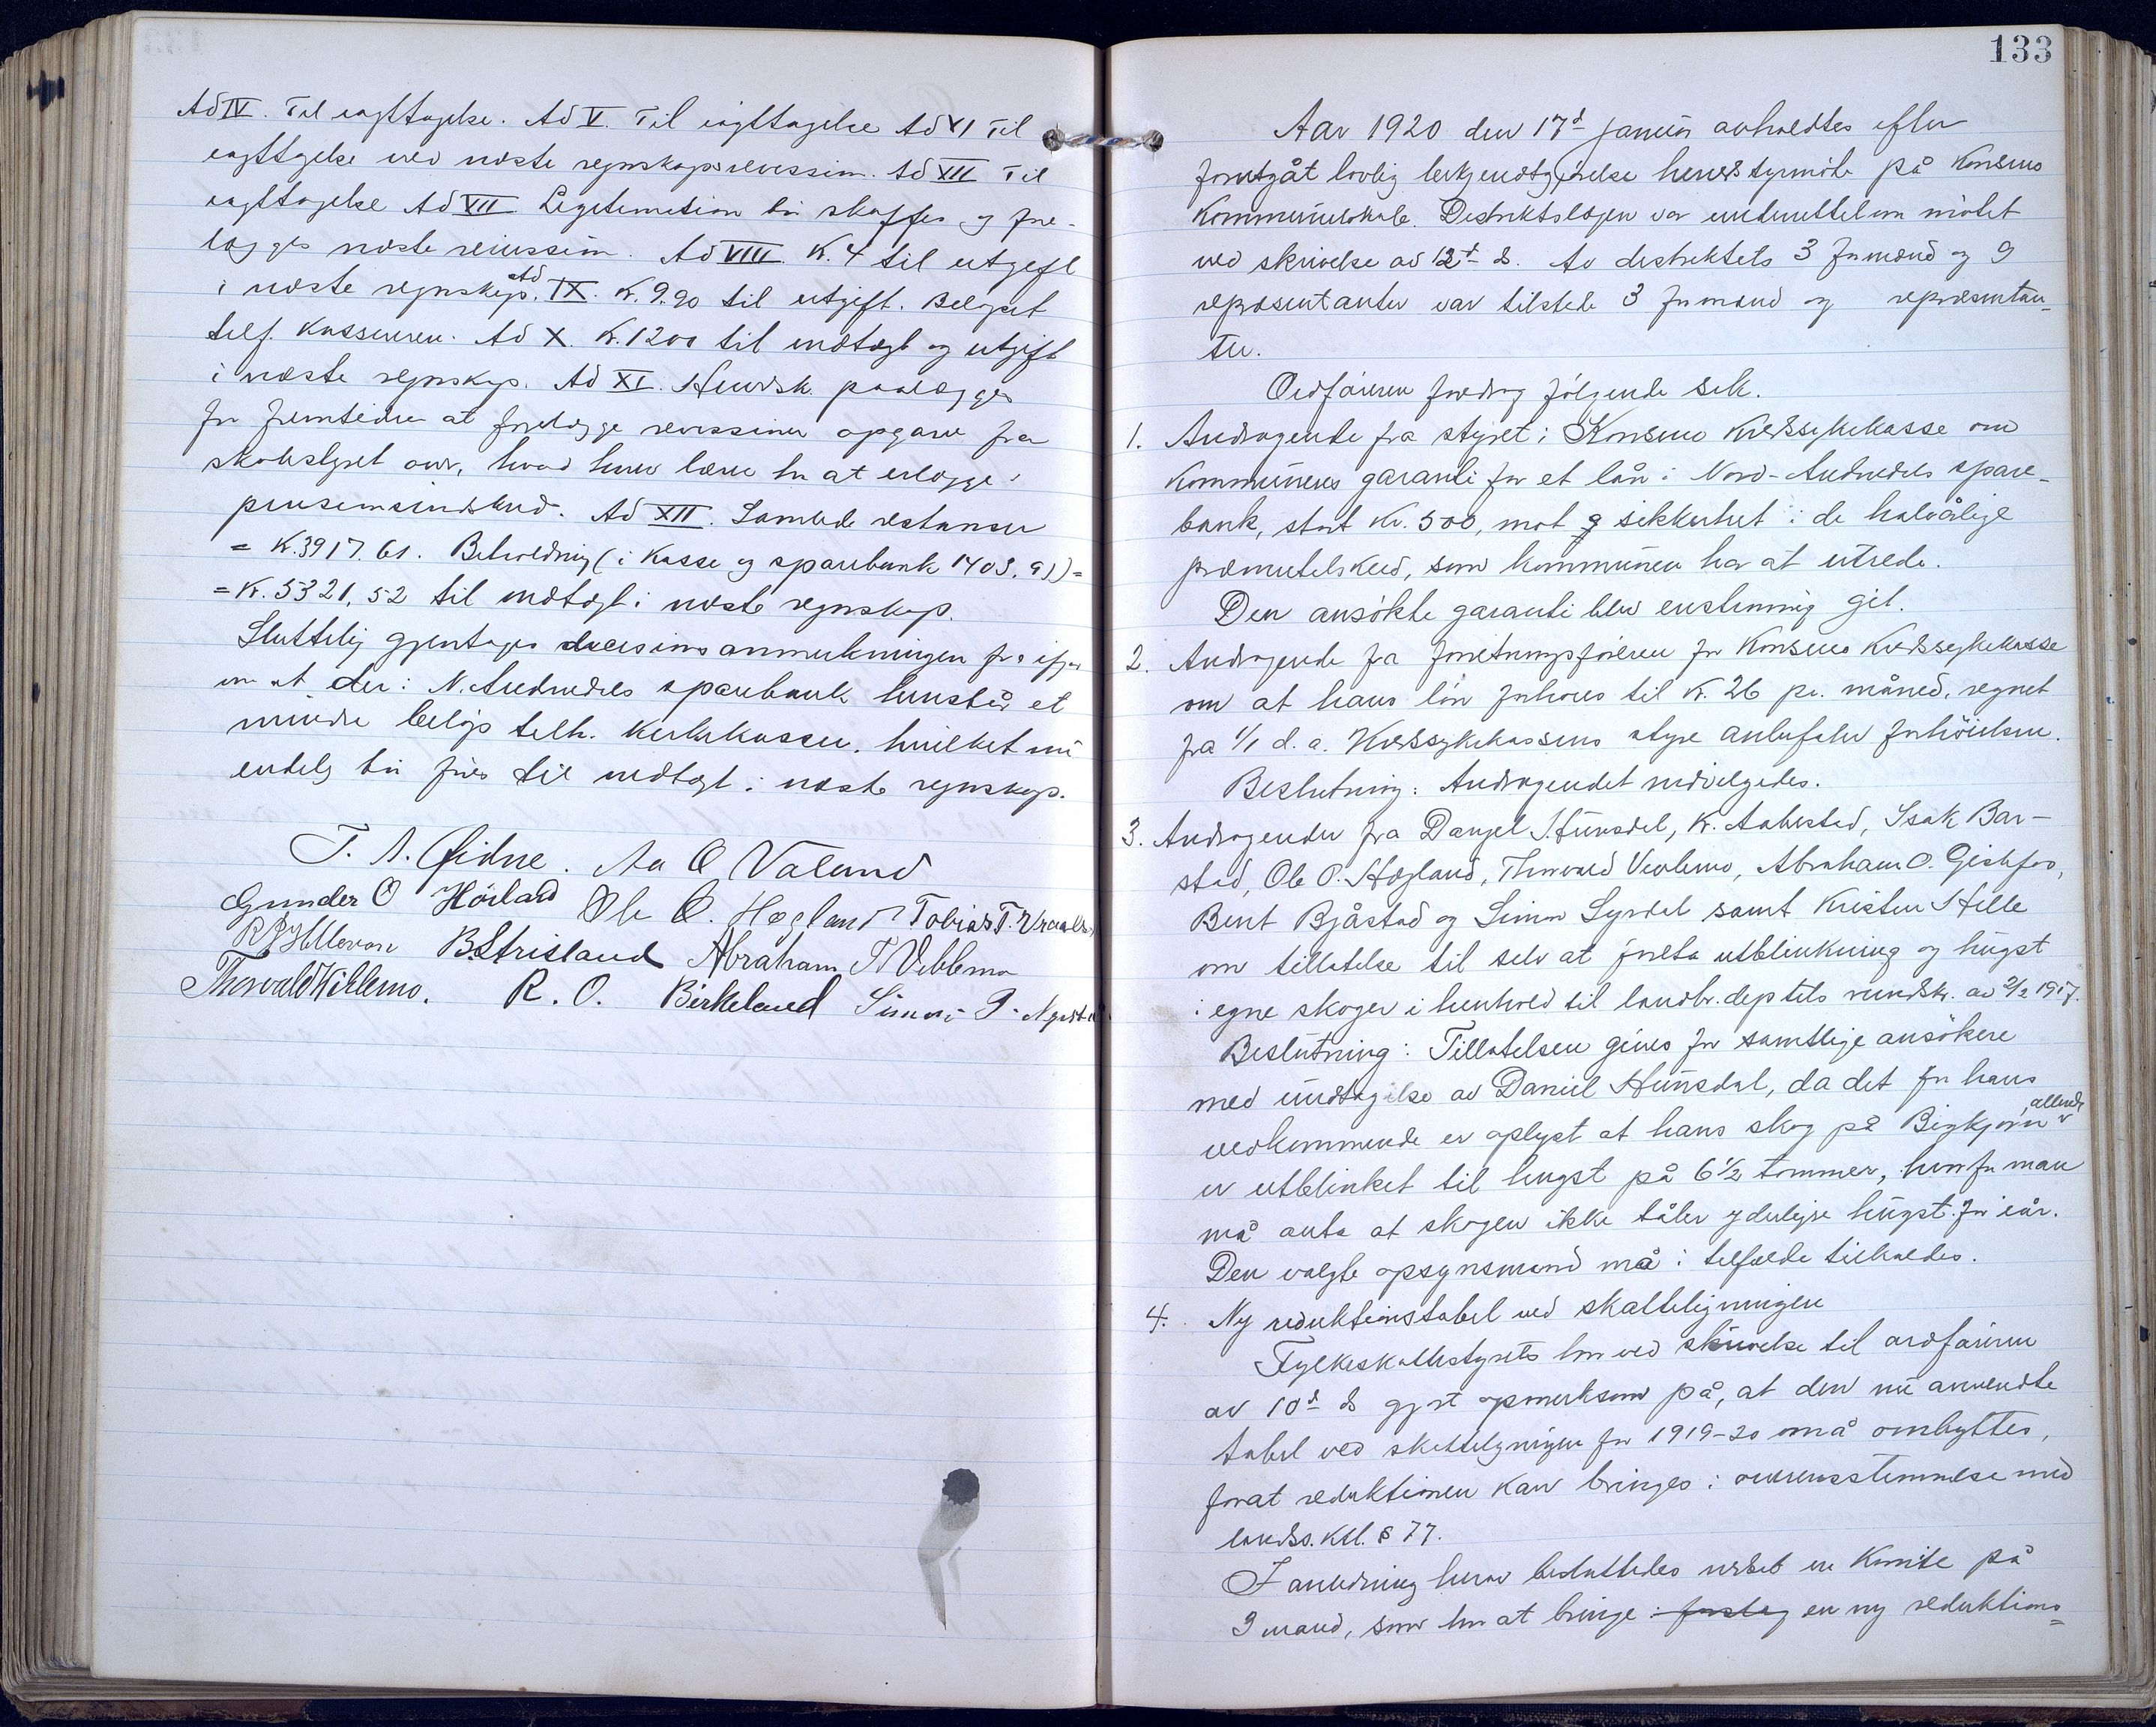 Ad IV. Til iagttagelse. Ad V. Til iagttagelse Ad VI Til
iagttagelse ved næste regnskapsrevision. Ad XII Til
iagttagelse Ad VII Legitimation bør skaffes og fore-
lægges næste revission. Ad VIII. Kr. 4 til utgift
i næste regnskap. Ad IX. Kr. 9.90 til utgift. Beløpet
tilf. kassereren. Ad X. Kr. 1200 til indtægt og utgift
i næste regnskap. Ad XI. Herredsk. paalægges
for fremtiden at forelægge revissionen opgave fra
skolestyret over, hvad hver lærer har at erlægge i
pensionsindskud. Ad XII. Samlede restanser
= Kr. 3917.61. Beholdning (i Kasse og sparebank 1403,91) =
= Kr. 5321,52 til indtægt i næste regnskap.
Sluttelig gjentages decisions anmerkningen fra ifjor
om at der i N. Audnedals sparebank henstår et
mindre beløp tilh. kirkekassen, hvilket nu
endelig bør føres til indtægt i næste regnskap.
T. A. Øidne. Aa O Valand
Gunder O Höiland Ole O. Høgland Tobias T.
B. Strisland Abraham T Vehlemo
Thorvald Wehlemo. R. O. Birkeland Simon P.
133
Aar 1920 den 17d januar avholdtes efter
forutgåt lovlig bekjendtgjørelse herredstyrmöte på Konsmo
Kommunelokale. Distriktslægen var underrettet om mötet
ved skrivelse av 12t ds. Av distriktets 3 formænd og 9
repræsentanter var tilstede 3 formænd og repræsentan-
ter.
Ordföreren foredrog fölgende sak.
1. Andragende fra styret i Konsmo Kredssykekasse om
kommunens garanti for et lån i Nord-Audnedals spare-
bank, stort Kr. 500, mot sikkerhet i de halvårlige
præmietilskud, som kommunen har at utrede.
Den ansökte garanti blev enstemmig git.
2. Andragende fra forretningsföreren for Konsmo Kredssykekasse
om at hans lön forhöies til Kr. 26 pr. måned, regnet
fra 1/1 d. a. Kredssykekassens styre anbefaler forhöielsen.
Beslutning: Andragendet indvilgedes.
3. Andragender fra Danjel Hunsdal, K. Aabestad, Isak Bar-
stad, Ole O. Høgland, Thorvald Vehlemo, Abraham O. Gislefos,
Bent Bjåstad og Simon Lyrdal samt Kristen Hille
om tillatelse til selv at foreta utblinkning og hugst
i egne skoger i henhold til landbr. deptets rundskr. av 2/2 1917.
Beslutning: Tillatelsen gives for samtlige ansökere
med undtagelse av Daniel Hunsdal, da det for hans
vedkommende er oplyst at hans skog på Bigkjörn allerede
er utblinket til hugst på 6 1/2 tommer, hvorfor man
må anta at skogen ikke tåler yderligere hugst for iår.
Den valgte opsynsmand må i tilfælde tilkaldes.
4. Ny reduktionstabel ved skatteligningen
Fylkesskattestyret har ved skrivelse til ordföreren
av 10d ds gjort opmerksom på, at den nu anvendte
tabel ved skatteligningen for 1919-20 må ombyttes,
forat reduktionen kan bringes i overensstemmelse med
landssk.l. § 77.
I anledning herav besluttedes nedsat en Komite på
3 mand, som har at bringe i forslag en ny reduktions=